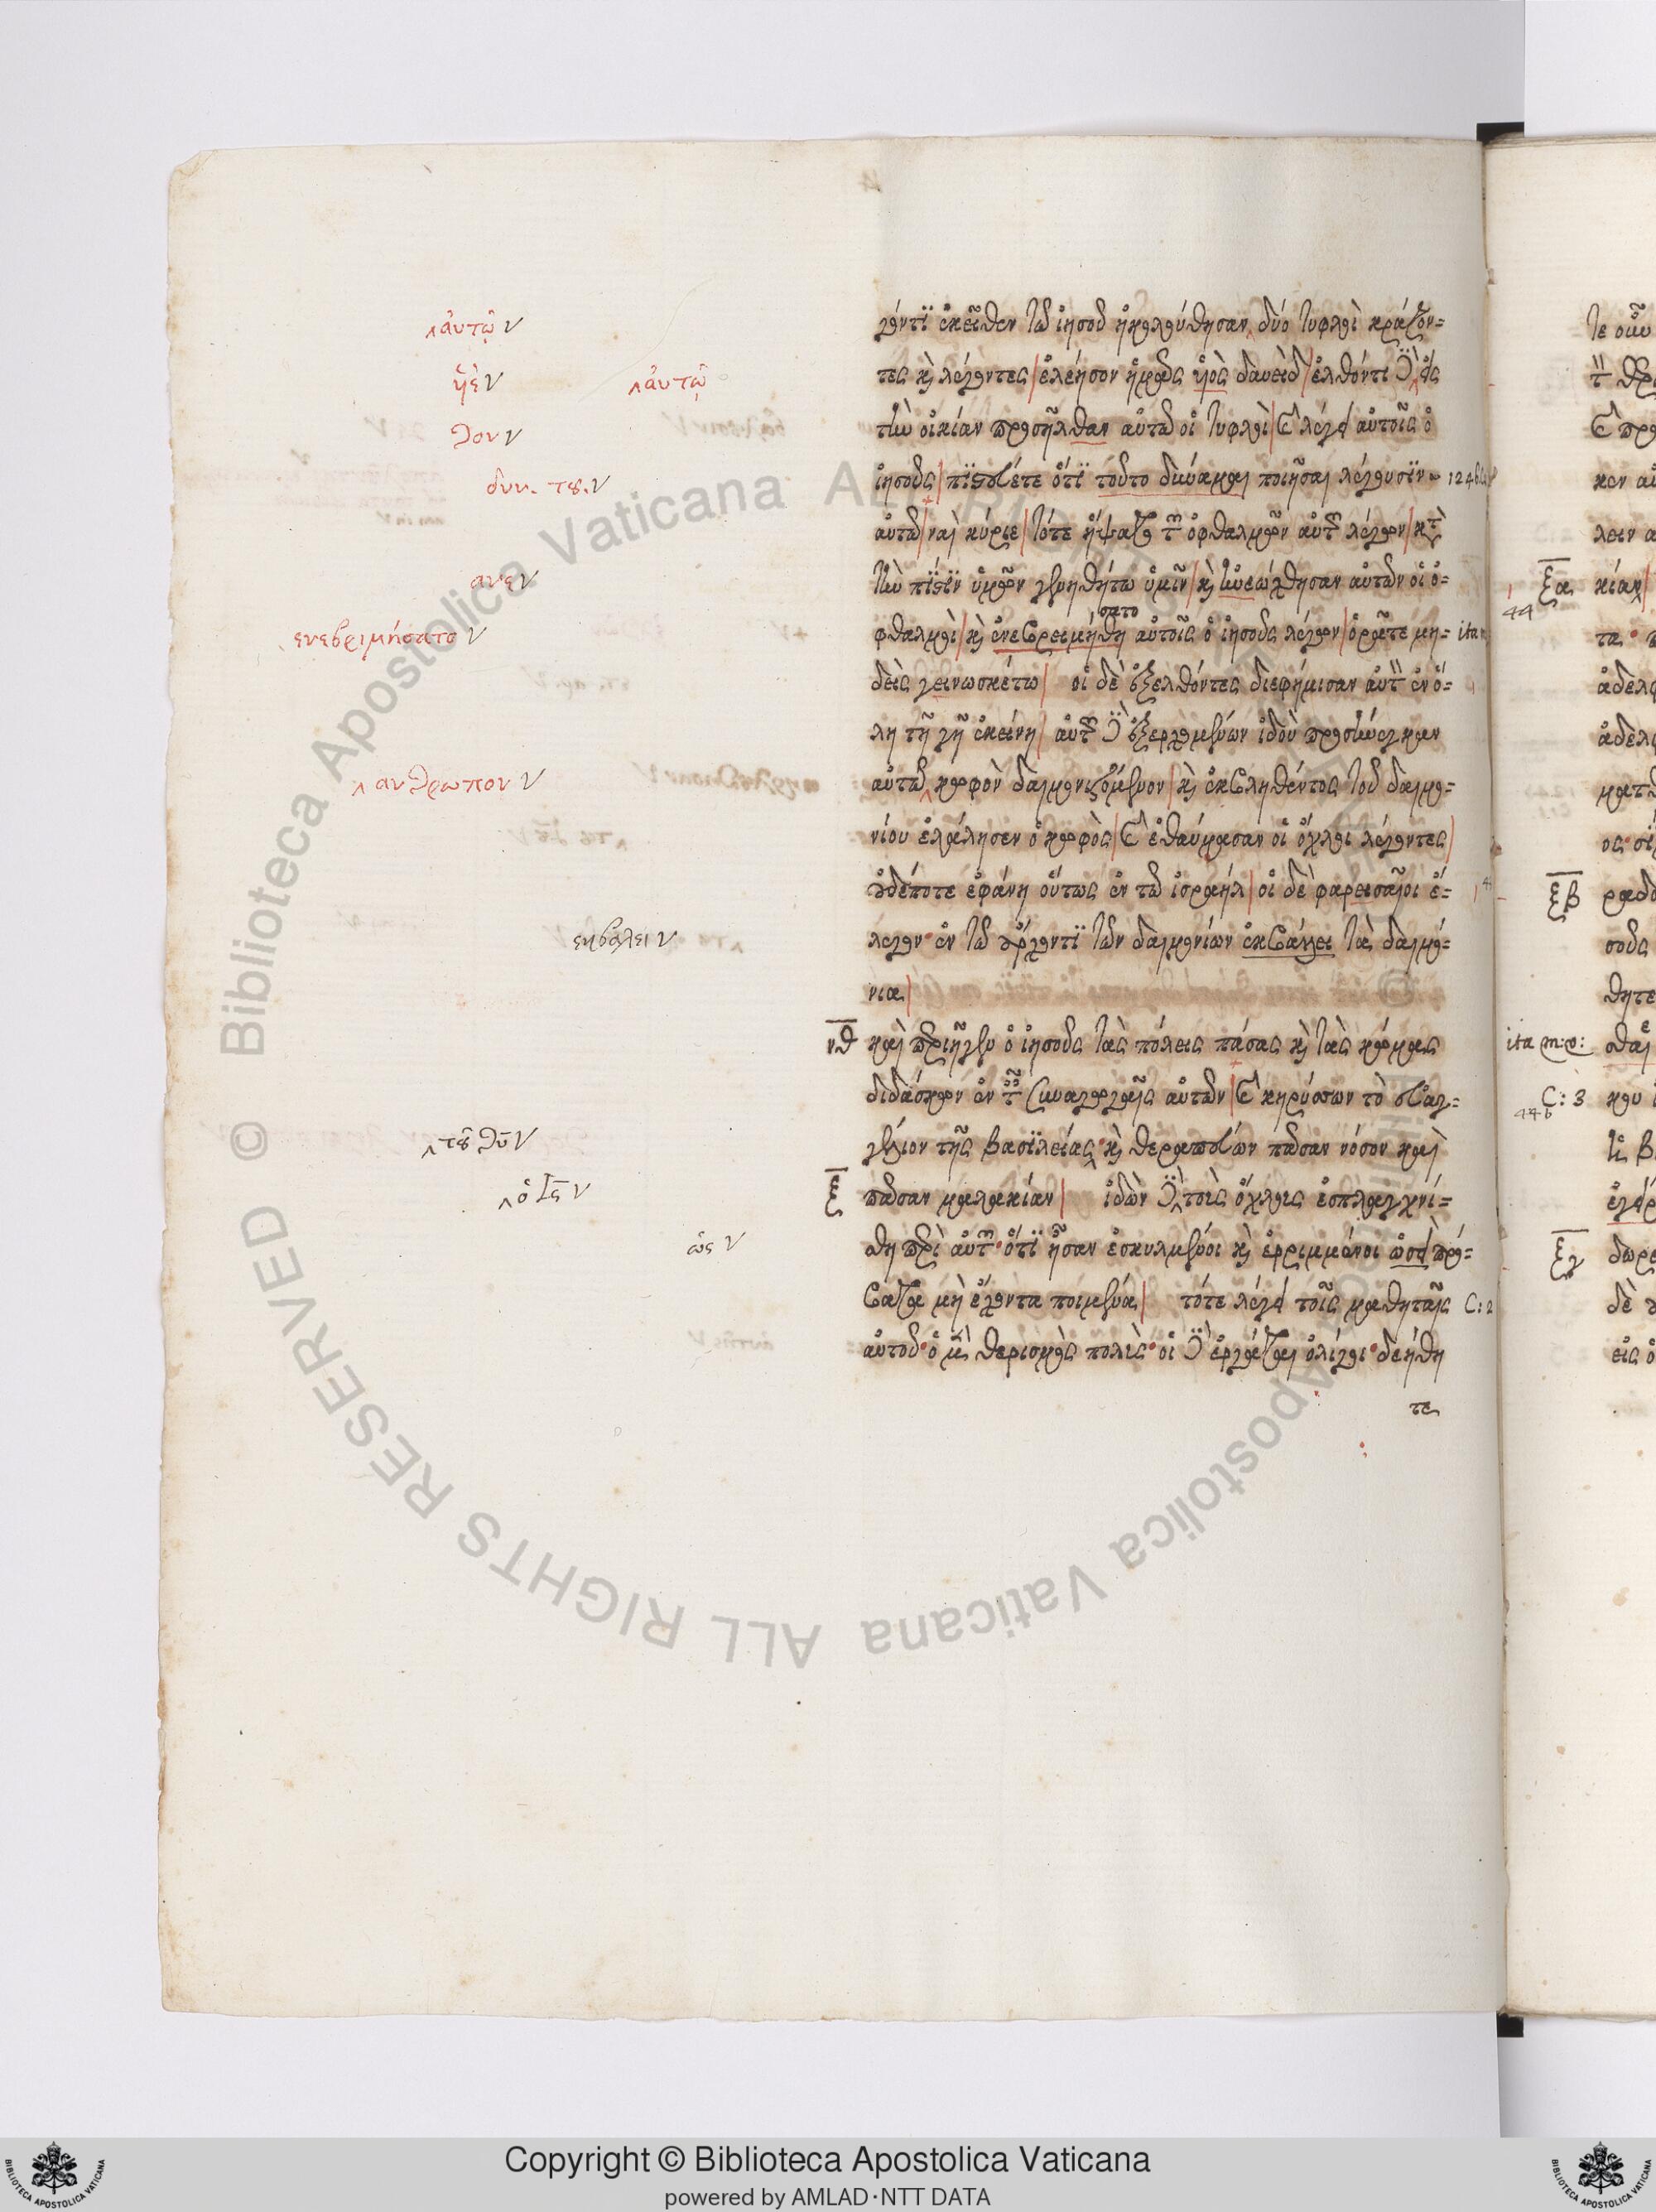 γόντι ἐκεῖθεν τῶ ἰησοῦ ἠκολούθησαν δύο τυφλοὶ κράζον=
τες καὶ λέγοντες ἐλέησον ἡμᾶς υἱὸς δαυεὶδ ἐλθόντι δὲ εἰς
τὴν οἰκίαν προσῆλθαν αὐτῶ οἱ τυφλοὶ καὶ λέγει αὐτοῖς ὁ
ἰησοῦς πιστεύετε ὅτι τοῦτο δύναμαι ποιῆσαι λέγουσιν
αὐτῶ ναὶ κύριε τότε ἥψατο τῶν ὀφθαλμῶν αὐτῶν λέγων κατὰ
τὴν πίστιν ὑμῶν γενηθήτω ὑμῖν καὶ ἠνεώχθησαν αὐτῶν οἱ ὀ=
φθαλμοὶ καὶ ἐνεβρειμήθη αὐτοῖς ὁ ἰησοῦς λέγων ὁρᾶτε μη=
δεὶς γεινωσκέτω οἱ δὲ ἐξελθόντες διεφήμισαν αὐτὸν ἐν ὅ=
λη τῆ γῆ ἐκείνη αὐτῶν δὲ ἐξερχομένων ἰδοὺ προσήνεγκαν
αὐτῶ κωφὸν δαιμονιζόμενον καὶ ἐκβληθέντος τοῦ δαιμο=
νίου ἐλάλησεν ὁ κωφὸς καὶ ἐθαύμασαν οἱ ὄχλοι λέγοντες
οὐδέποτε ἐφάνη οὕτως ἐν τῶ ἰσραήλ οἱ δὲ φαρεισαῖοι ἔ=
λεγον ἐν τῶ ἄρχοντι τῶν δαιμονίων ἐκβάλλει τὰ δαιμό=
νια
νθ καὶ περιῆγεν ὁ ἰησοῦς τὰς πόλεις πάσας καὶ τὰς κώμας
διδάσκων ἐν ταῖς συναγωγαῖς αὐτῶν καὶ κηρύσσων τὸ εὐαγ=
γέλιον τῆς βασιλείας καὶ θεραπεύων πᾶσαν νόσον καὶ
ξ πᾶσαν μαλακίαν ἰδὼν δὲ τοὺς ὄχλους ἐσπλαγχνί=
σθη περὶ αὐτῶν ὅτι ἦσαν ἐσκυλμένοι καὶ ἐρριμμένοι ὡσεὶ πρό=
βατα μὴ ἔχοντα ποιμένα τότε λέγει τοῖς μαθηταῖς C: 2
αὐτοῦ ὁ μὲν θερισμὸς πολὺς οἱ δὲ ἐργάται ὀλίγοι δεήθη
τε
αὐτῷ
αὐτῷ
θον
δυν. τȣ.
ανε
ενεβριμήσατο
σατο
ανθρωπον
εκβαλει
τȣ θῡ
ὁ Ις̄
ὡς
ξα
ξβ
ita m:o:
C: 3
ξγ
Copyright © Biblioteca Apostolica Vaticana
powered by AMLAD·NTT DATA